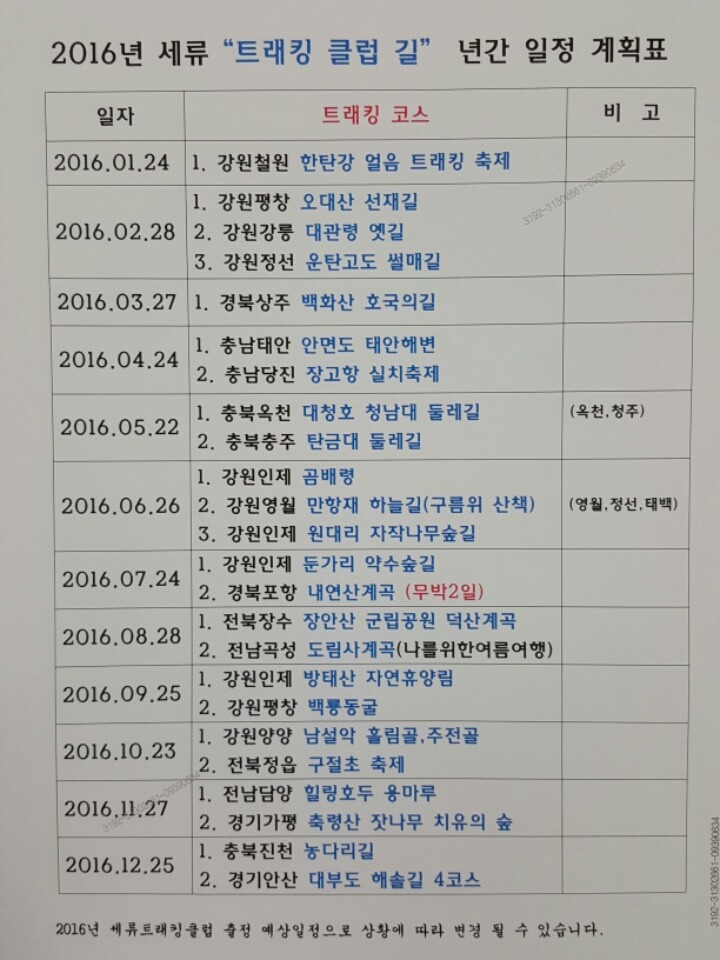 2016년 세류 “트래킹 클럽 길” 년간 일정 계획표
일자 트래킹 코스 비 고
2016.01.24 1. 강원철원 한탄강 얼음 트래킹 축제
2016.02.28 1. 강원평창 오대산 선재길
2. 강원강릉 대관령 옛길
3. 강원정선 운탄고도 썰매길
2016.03.27 1. 경북상주 백화산 호국의길
2016.04.24 1. 충남태안 안면도 태안해변
2. 충남당진 장고항 실치축제
2016.05.22 1. 충북옥천 대청호 청남대 둘레길 (옥천,청주)
2. 충북충주 탄금대 둘레길
2016.06.26 1. 강원인제 곰배령
2. 강원영월 만항재 하늘길(구름위 산책) (영월,정선,태백)
3. 강원인제 원대리 자작나무숲길
2016.07.24 1. 강원인제 둔가리 약수숲길
2. 경북포항 내연산계곡 (무박2일)
2016.08.28 1. 전북장수 장안산 군립공원 덕산계곡
2. 전남곡성 도림사계곡(나를위한여름여행)
2016.09.25 1. 강원인제 방태산 자연휴양림
2. 강원평창 백룡동굴
2016.10.23 1. 강원양양 남설악 흘림골,주전골
2. 전북정읍 구절초 축제
2016.11.27 1. 전남담양 힐링호두 용마루
2. 경기가평 축령산 잣나무 치유의 숲
2016.12.25 1. 충북진천 농다리길
2. 경기안산 대부도 해솔길 4코스
2016년 세류트래킹클럽 출정 예상일정으로 상황에 따라 변경 될 수 있습니다.
3192-31302661-09390634
3192-31302661-09390634
3192-31302661-09390634